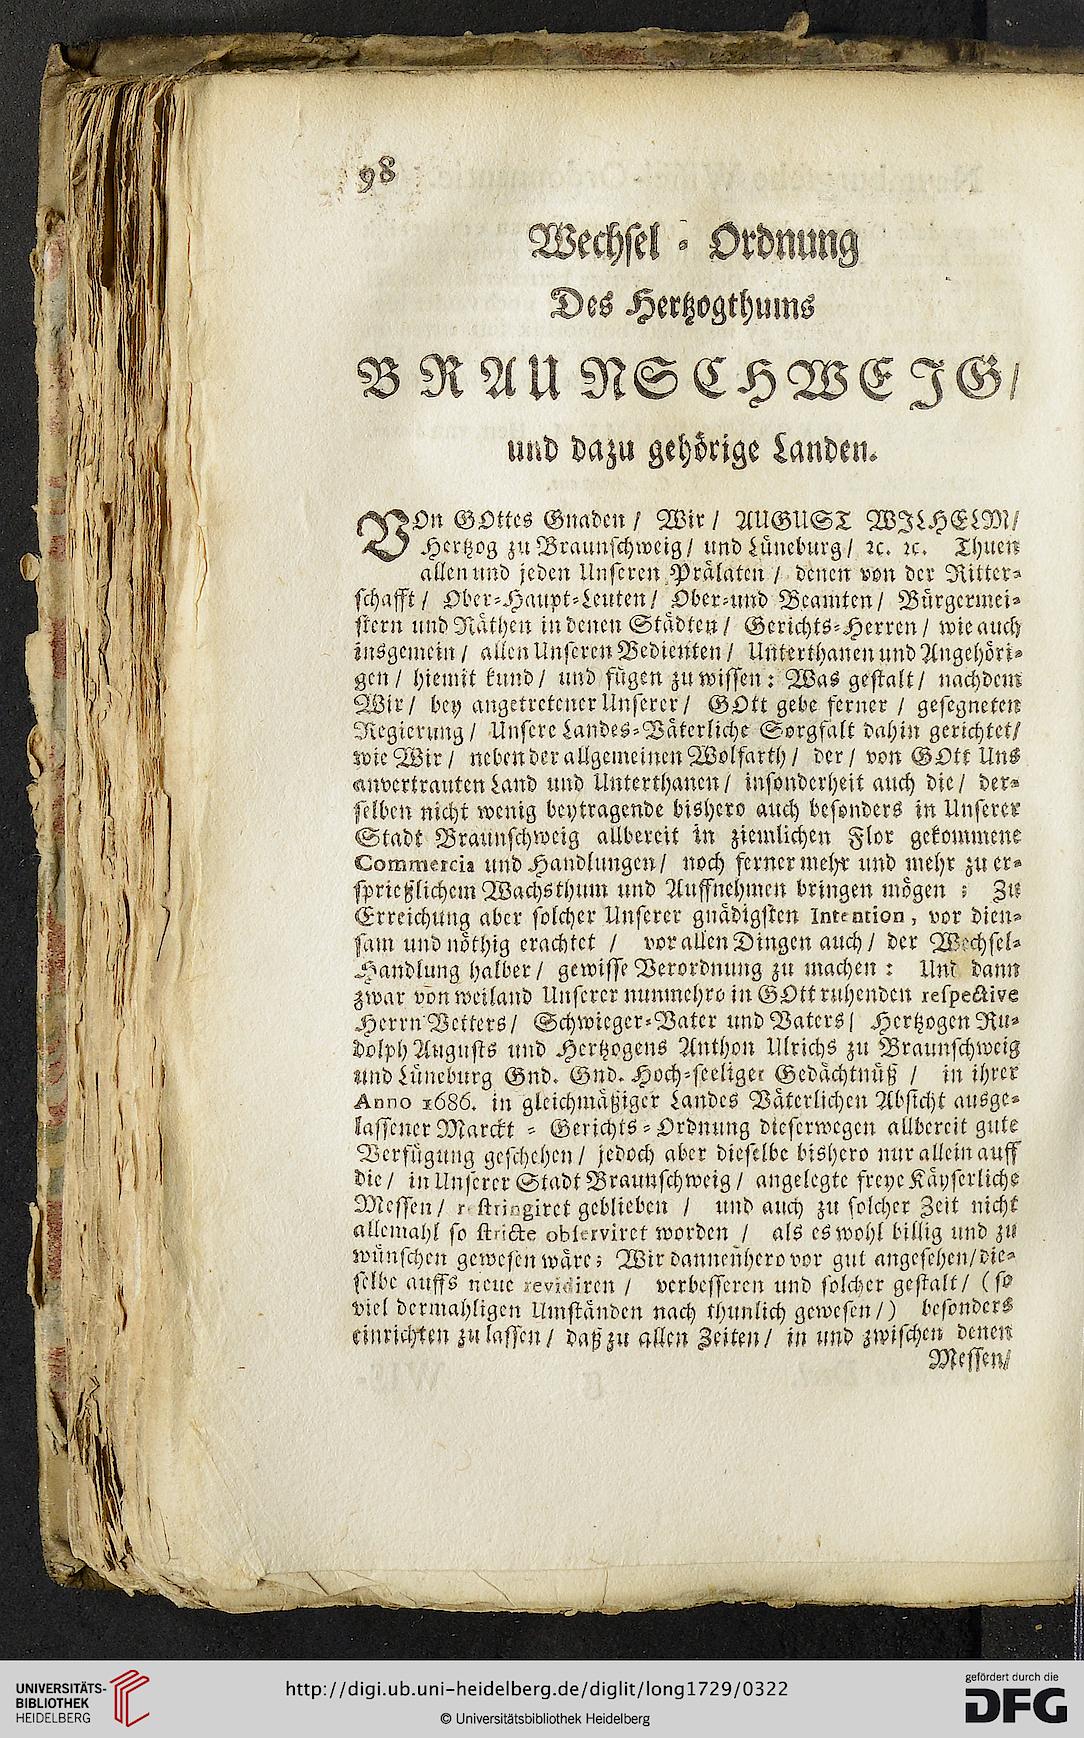 98
Wechsel-Ordnung
Des Hertzogthums
BRAUNSCHWEIG/
und dazu gehörige Landen.
VOn GOttes Gnaden / Wir / AUGUST WILHELM/
Hertzog zu Braunschweig / und Lüneburg / ꝛc. ꝛc. Thuen
allen und jeden Unseren Prälaten / denen von der Ritter-
schafft / Ober-Haupt-Leuten / Ober-und Beamten / Bürgermei-
stern und Räthen in denen Städten / Gerichts-Herren / wie auch
insgemein / allen Unseren Bedienten / Unterthanen und Angehöri-
gen / hiemit kund / und fügen zu wissen: Was gestalt / nachdem
Wir / bey angetretener Unserer / GOtt gebe ferner / gesegneten
Regierung / Unsere Landes-Väterliche Sorgfalt dahin gerichtet/
wie Wir / neben der allgemeinen Wolfarth / der / von GOtt Uns
anvertrauten Land und Unterthanen / insonderheit auch die / der-
selben nicht wenig beytragende bishero auch besonders in Unserer
Stadt Braunschweig allbereit in ziemlichen Flor gekommene
Commercia und Handlungen / noch ferner mehr und mehr zu er-
sprießlichem Wachsthum und Auffnehmen bringen mögen ; Zu
Erreichung aber solcher Unserer gnädigsten Intention, vor dien-
sam und nöthig erachtet / vor allen Dingen auch / der Wechsel-
Handlung halber / gewisse Verordnung zu machen : Und dann
zwar von weiland Unserer nunmehro in GOtt ruhenden respective
Herrn Vetters / Schwieger-Vater und Vaters / Hertzogen Ru-
dolph Augusts und Hertzogens Anthon Ulrichs zu Braunschweig
und Lüneburg Gnd. Gnd. Hoch-seeliger Gedächtnüß / in ihrer
Anno 1686. in gleichmäßiger Landes Väterlichen Absicht ausge-
lassener Marckt-Gerichts-Ordnung dieserwegen allbereit gute
Verfügung geschehen / jedoch aber dieselbe bishero nur allein auff
die / in Unserer Stadt Braunschweig / angelegte freye Käyserliche
Messen / restringiret geblieben / und auch zu solcher Zeit nicht
allemahl so stricte observiret worden / als es wohl billig und zu
wünschen gewesen wäre; Wir dannenhero vor gut angesehen/ die-
selbe auffs neue revidiren / verbesseren und solcher gestalt / (so
viel dermahligen Umständen nach thunlich gewesen/) besonders
einrichten zu lassen / daß zu allen Zeiten / in und zwischen denen
Messen/
UNIVERSITÄTS-
BIBLIOTHEK
HEIDELBERG
http://digi.ub.uni-heidelberg.de/diglit/long1729/0322
© Universitätsbibliothek Heidelberg
gefördert durch die
DFG